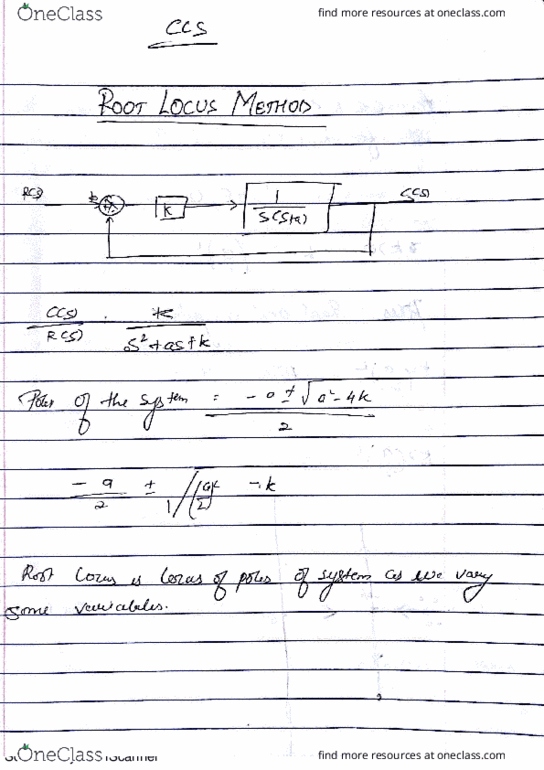 OneClass
find more resources at oneclass.com
CCS
ROOT LOCUS METHOD
R(s) K 1 C(s)
S(S+a)
C(s) K
R(s) S²+as+k
Poles of the system = -a ± √a²-4k
2
-a ± √(a/2)² -k
2
Root locus is locus of poles of system as we vary
some variables.
OneClass
find more resources at oneclass.com